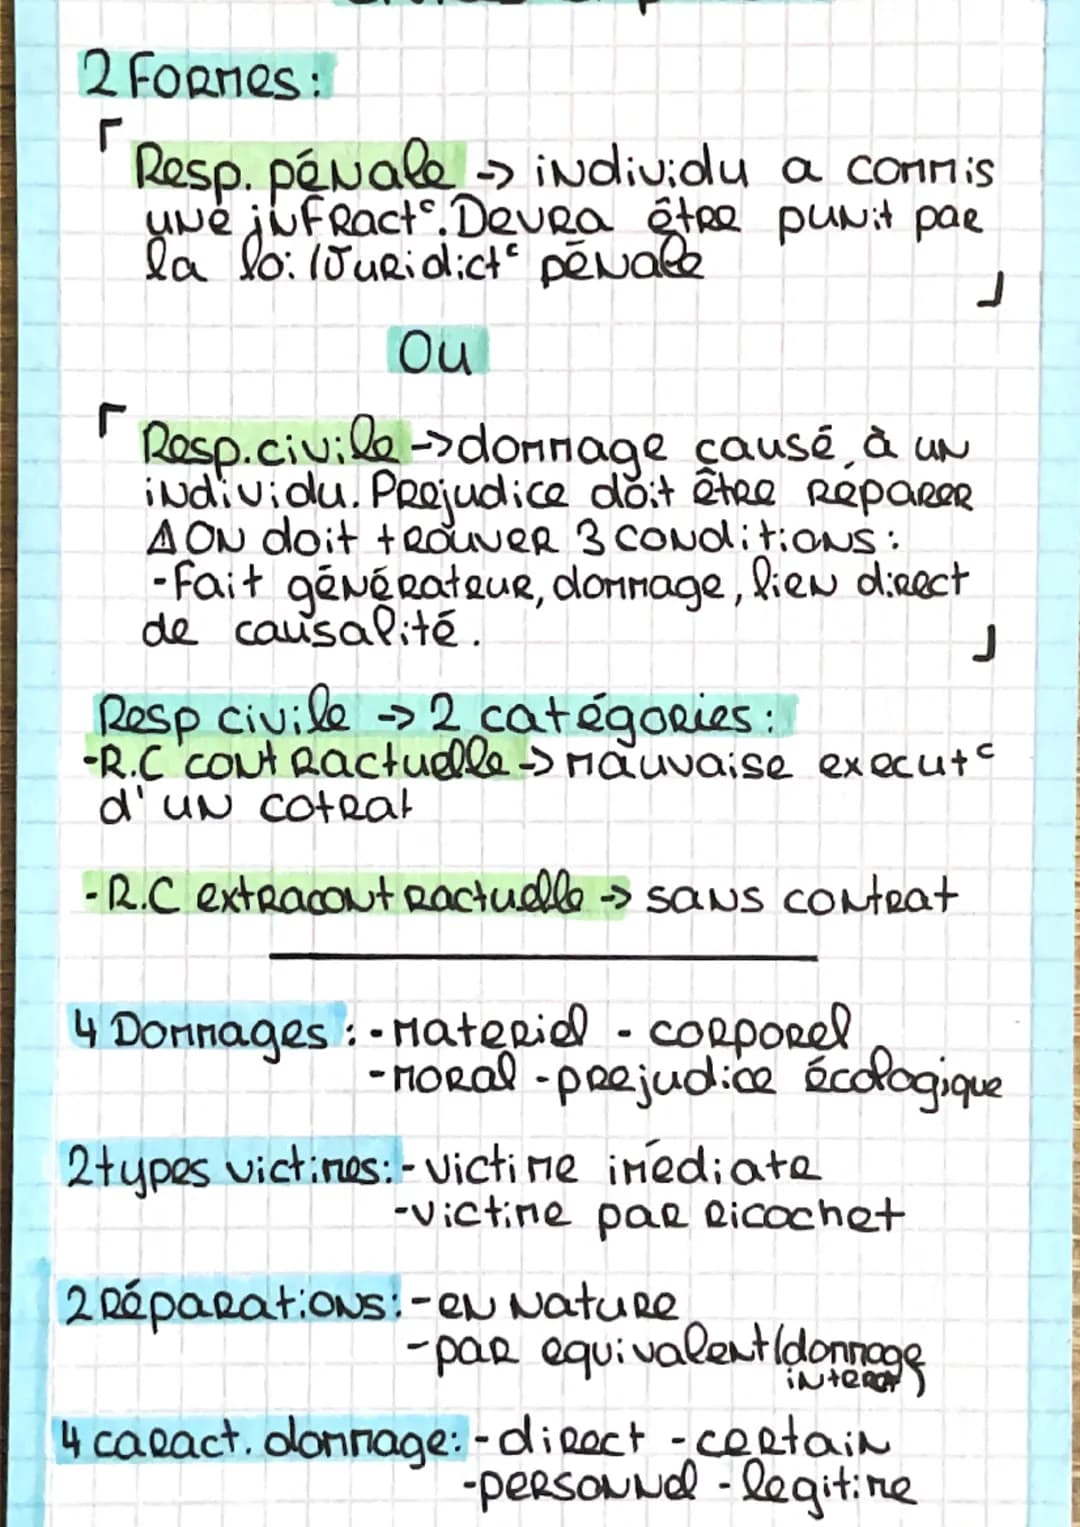 2 Formes:
Resp. pénale -> individu a commis
une infract°. Devra être punit par
la loi/Juridict° pénale
Ou
Resp. civile -> dommage causé à un
individu. Préjudice doit être réparer
⚠ On doit trouver 3 conditions:
- Fait générateur, dommage, lien direct
de causalité.
Resp civile -> 2 catégories:
-R.C contractuelle -> mauvaise execut°
d'un cotrat
-R.C extracontractuelle -> sans contrat
4 Dommages: - materiel - corporel
- moral - prejudice écologique
2 types victimes: - victime imédiate
- victime par ricochet
2 Réparations: - en nature
- par equivalent (dommage
interet)
4 caract. dommage: - direct - certain
- personnel - legitime